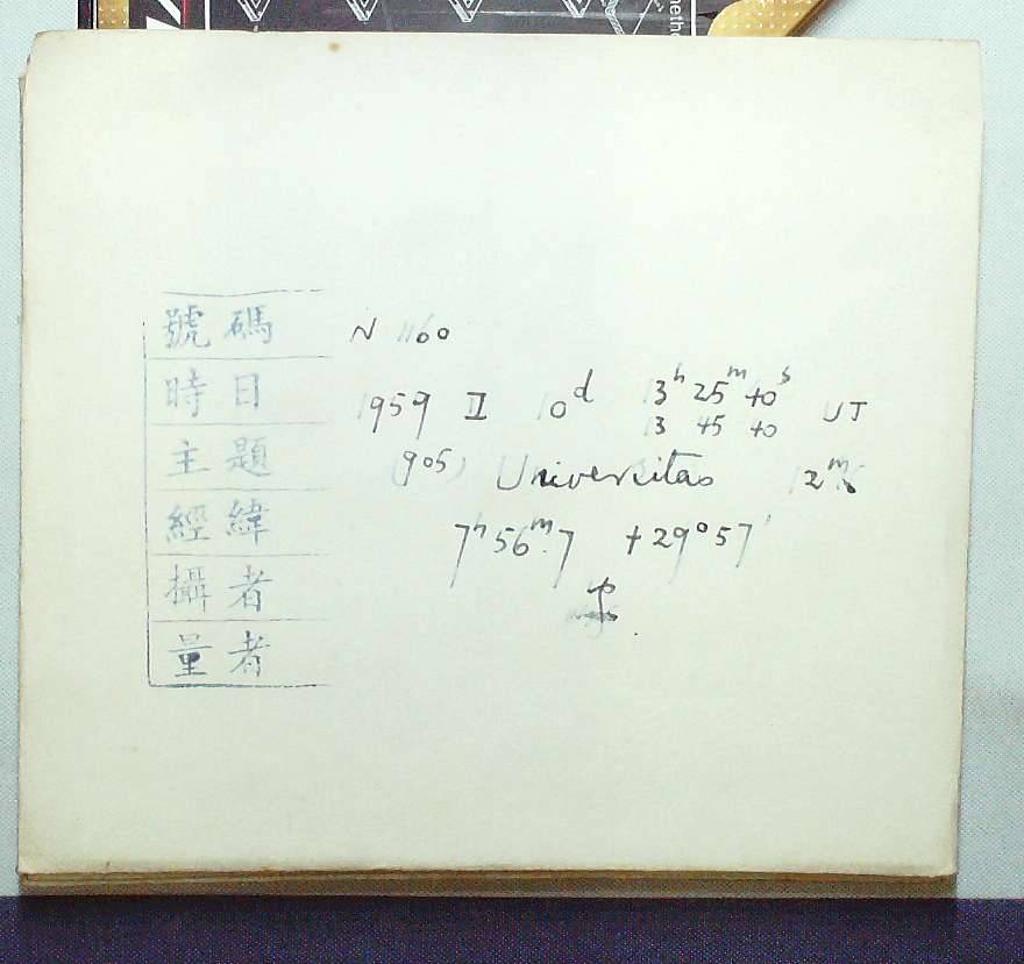 號碼 N 1160
時日 1959 II 10ᵈ 13ʰ 25ᵐ 40ˢ UT
13 45 40
主題 (905) Universitas 12ᵐ.
經緯 7ʰ56ᵐ.7 +29°57'
攝者
量者